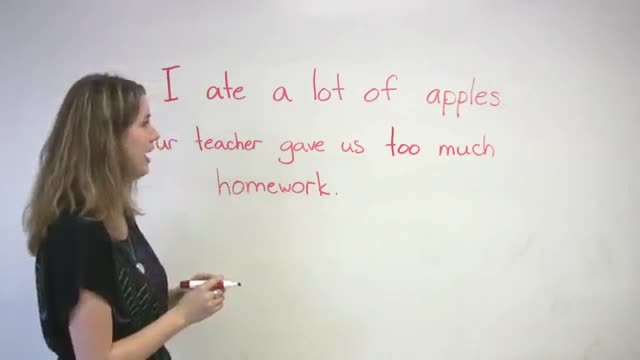 I ate a lot of apples.
ur teacher gave us too much
homework.